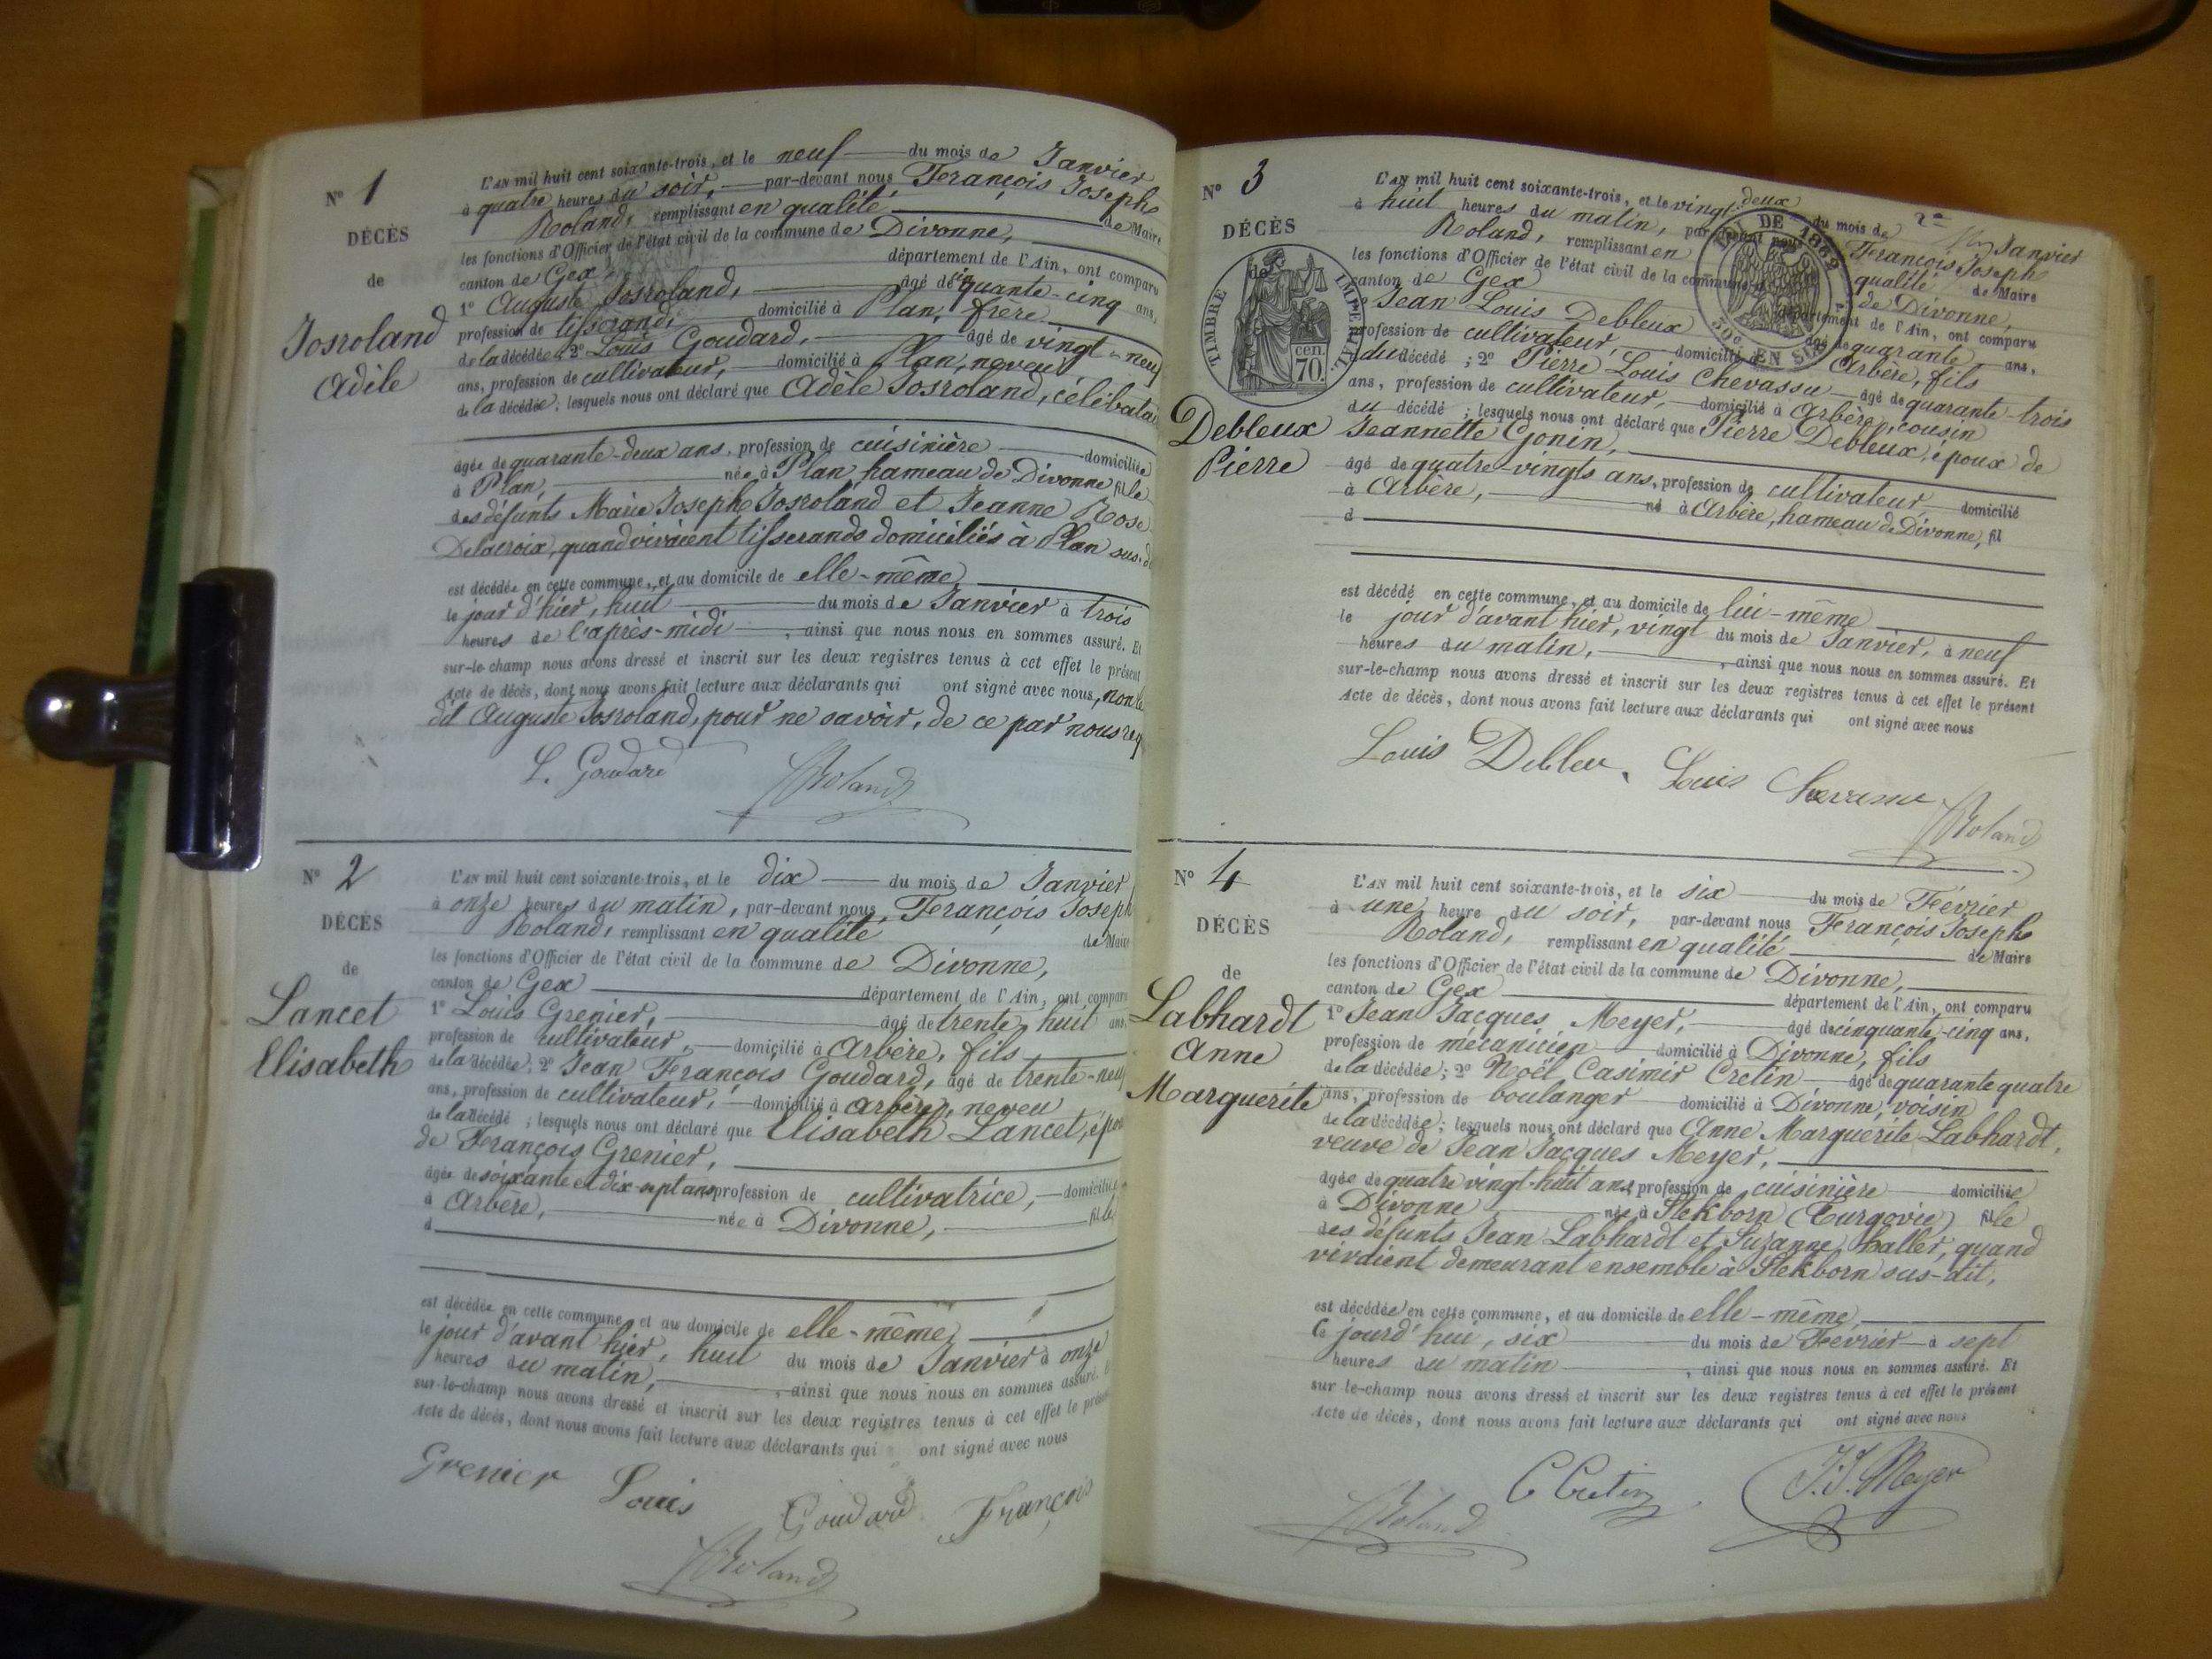 N° 1
DÉCÈS
de
Josroland
Adèle
L'AN mil huit cent soixante-trois, et le neuf du mois de Janvier
à quatre heures du soir, par-devant nous François Joseph
Roland, remplissant en qualité de Maire
les fonctions d'Officier de l'état civil de la commune de Divonne,
canton de Gex département de l'Ain, ont comparu
1° Auguste Josroland, âgé de cinquante-cinq ans,
profession de tisserand, domicilié à Plan, frère
de la décédée; 2° Louis Goudard, âgé de vingt-neuf
ans, profession de cultivateur, domicilié à Plan, neveu
de la décédée; lesquels nous ont déclaré que Adèle Josroland, célibatai
âgée de quarante-deux ans, profession de cuisinière domiciliée
à Plan, née à Plan, hameau de Divonne fille
des défunts Marie Joseph Josroland et Jeanne Rose
Delacroix, quand vivaient tisserands domiciliés à Plan sus-d
est décédée en cette commune, et au domicile de elle-même,
le jour d'hier, huit du mois de Janvier à trois
heures de l'après-midi, ainsi que nous nous en sommes assuré. Et
sur-le-champ nous avons dressé et inscrit sur les deux registres tenus à cet effet le présent
Acte de décès, dont nous avons fait lecture aux déclarants qui ont signé avec nous, non le
dit Auguste Josroland, pour ne savoir, de ce par nous req
L. Goudard
Roland
N° 2
DÉCÈS
de
Lancet
Elisabeth
L'AN mil huit cent soixante-trois, et le dix du mois de Janvier
à onze heures du matin, par-devant nous François Joseph
Roland, remplissant en qualité de Maire
les fonctions d'Officier de l'état civil de la commune de Divonne,
canton de Gex département de l'Ain, ont comparu
1° Louis Grenier, âgé de trente huit ans,
profession de cultivateur, domicilié à Arbère, fils
de la décédée; 2° Jean François Goudard, âgé de trente-neuf
ans, profession de cultivateur, domicilié à Arbère, neveu
de la décédé; lesquels nous ont déclaré que Elisabeth Lancet, épou
de François Grenier,
âgée de soixante et dix sept ans profession de cultivatrice, domiciliée
à Arbère, née à Divonne, fille
d
est décédée en cette commune, et au domicile de elle-même,
le jour d'avant hier, huit du mois de Janvier à onze
heures du matin, ainsi que nous nous en sommes assuré. E
sur-le-champ nous avons dressé et inscrit sur les deux registres tenus à cet effet le présent
Acte de décès, dont nous avons fait lecture aux déclarants qui ont signé avec nous
Grenier Louis Goudard François
Roland
N° 3
DÉCÈS
de
TIMBRE IMPÉRIAL
70 cen.
Debleux
Pierre
DE 1862
EN SUS
L'AN mil huit cent soixante-trois, et le vingt-deux du mois de Janvier
à huit heures du matin, par-devant nous François Joseph
Roland, remplissant en qualité de Maire
les fonctions d'Officier de l'état civil de la commune de Divonne,
canton de Gex département de l'Ain, ont comparu
1° Jean Louis Debleux âgé de quarante ans,
profession de cultivateur, domicilié à Arbère, fils
du décédé; 2° Pierre Louis Chevassu âgé de quarante-trois
ans, profession de cultivateur, domicilié à Arbère, cousin
du décédé; lesquels nous ont déclaré que Pierre Debleux, époux de
Jeannette Gonin,
âgé de quatre-vingts ans, profession de cultivateur, domicilié
à Arbère, né à Arbère, hameau de Divonne, fil
d
est décédé en cette commune, et au domicile de lui-même
le jour d'avant hier, vingt du mois de Janvier, à neuf
heures du matin, ainsi que nous nous en sommes assuré. Et
sur-le-champ nous avons dressé et inscrit sur les deux registres tenus à cet effet le présent
Acte de décès, dont nous avons fait lecture aux déclarants qui ont signé avec nous
Louis Debleu. Louis Chevassu
Roland
N° 4
DÉCÈS
de
Labhardt
Anne
Marguerite
L'AN mil huit cent soixante-trois, et le six du mois de Février
à une heure du soir, par-devant nous François Joseph
Roland, remplissant en qualité de Maire
les fonctions d'Officier de l'état civil de la commune de Divonne,
canton de Gex département de l'Ain, ont comparu
1° Jean Jacques Meyer, âgé de cinquante-cinq ans,
profession de mécanicien domicilié à Divonne, fils
de la décédée; 2° Noël Casimir Cretin âgé de quarante quatre
ans, profession de boulanger domicilié à Divonne, voisin
de la décédée; lesquels nous ont déclaré que Anne Marguerite Labhardt,
veuve de Jean Jacques Meyer,
âgée de quatre vingt-huit ans, profession de cuisinière domiciliée
à Divonne née à Stekborn (Turgovie) fille
des défunts Jean Labhardt et Suzanne haller, quand
vivaient demeurant ensemble à Stekborn sus-dit,
est décédée en cette commune, et au domicile de elle-même,
le jourd'hui, six du mois de Février à sept
heures du matin, ainsi que nous nous en sommes assuré. Et
sur le-champ nous avons dressé et inscrit sur les deux registres tenus à cet effet le présent
Acte de décès, dont nous avons fait lecture aux déclarants qui ont signé avec nous
Roland C Cretin J. J. Meyer